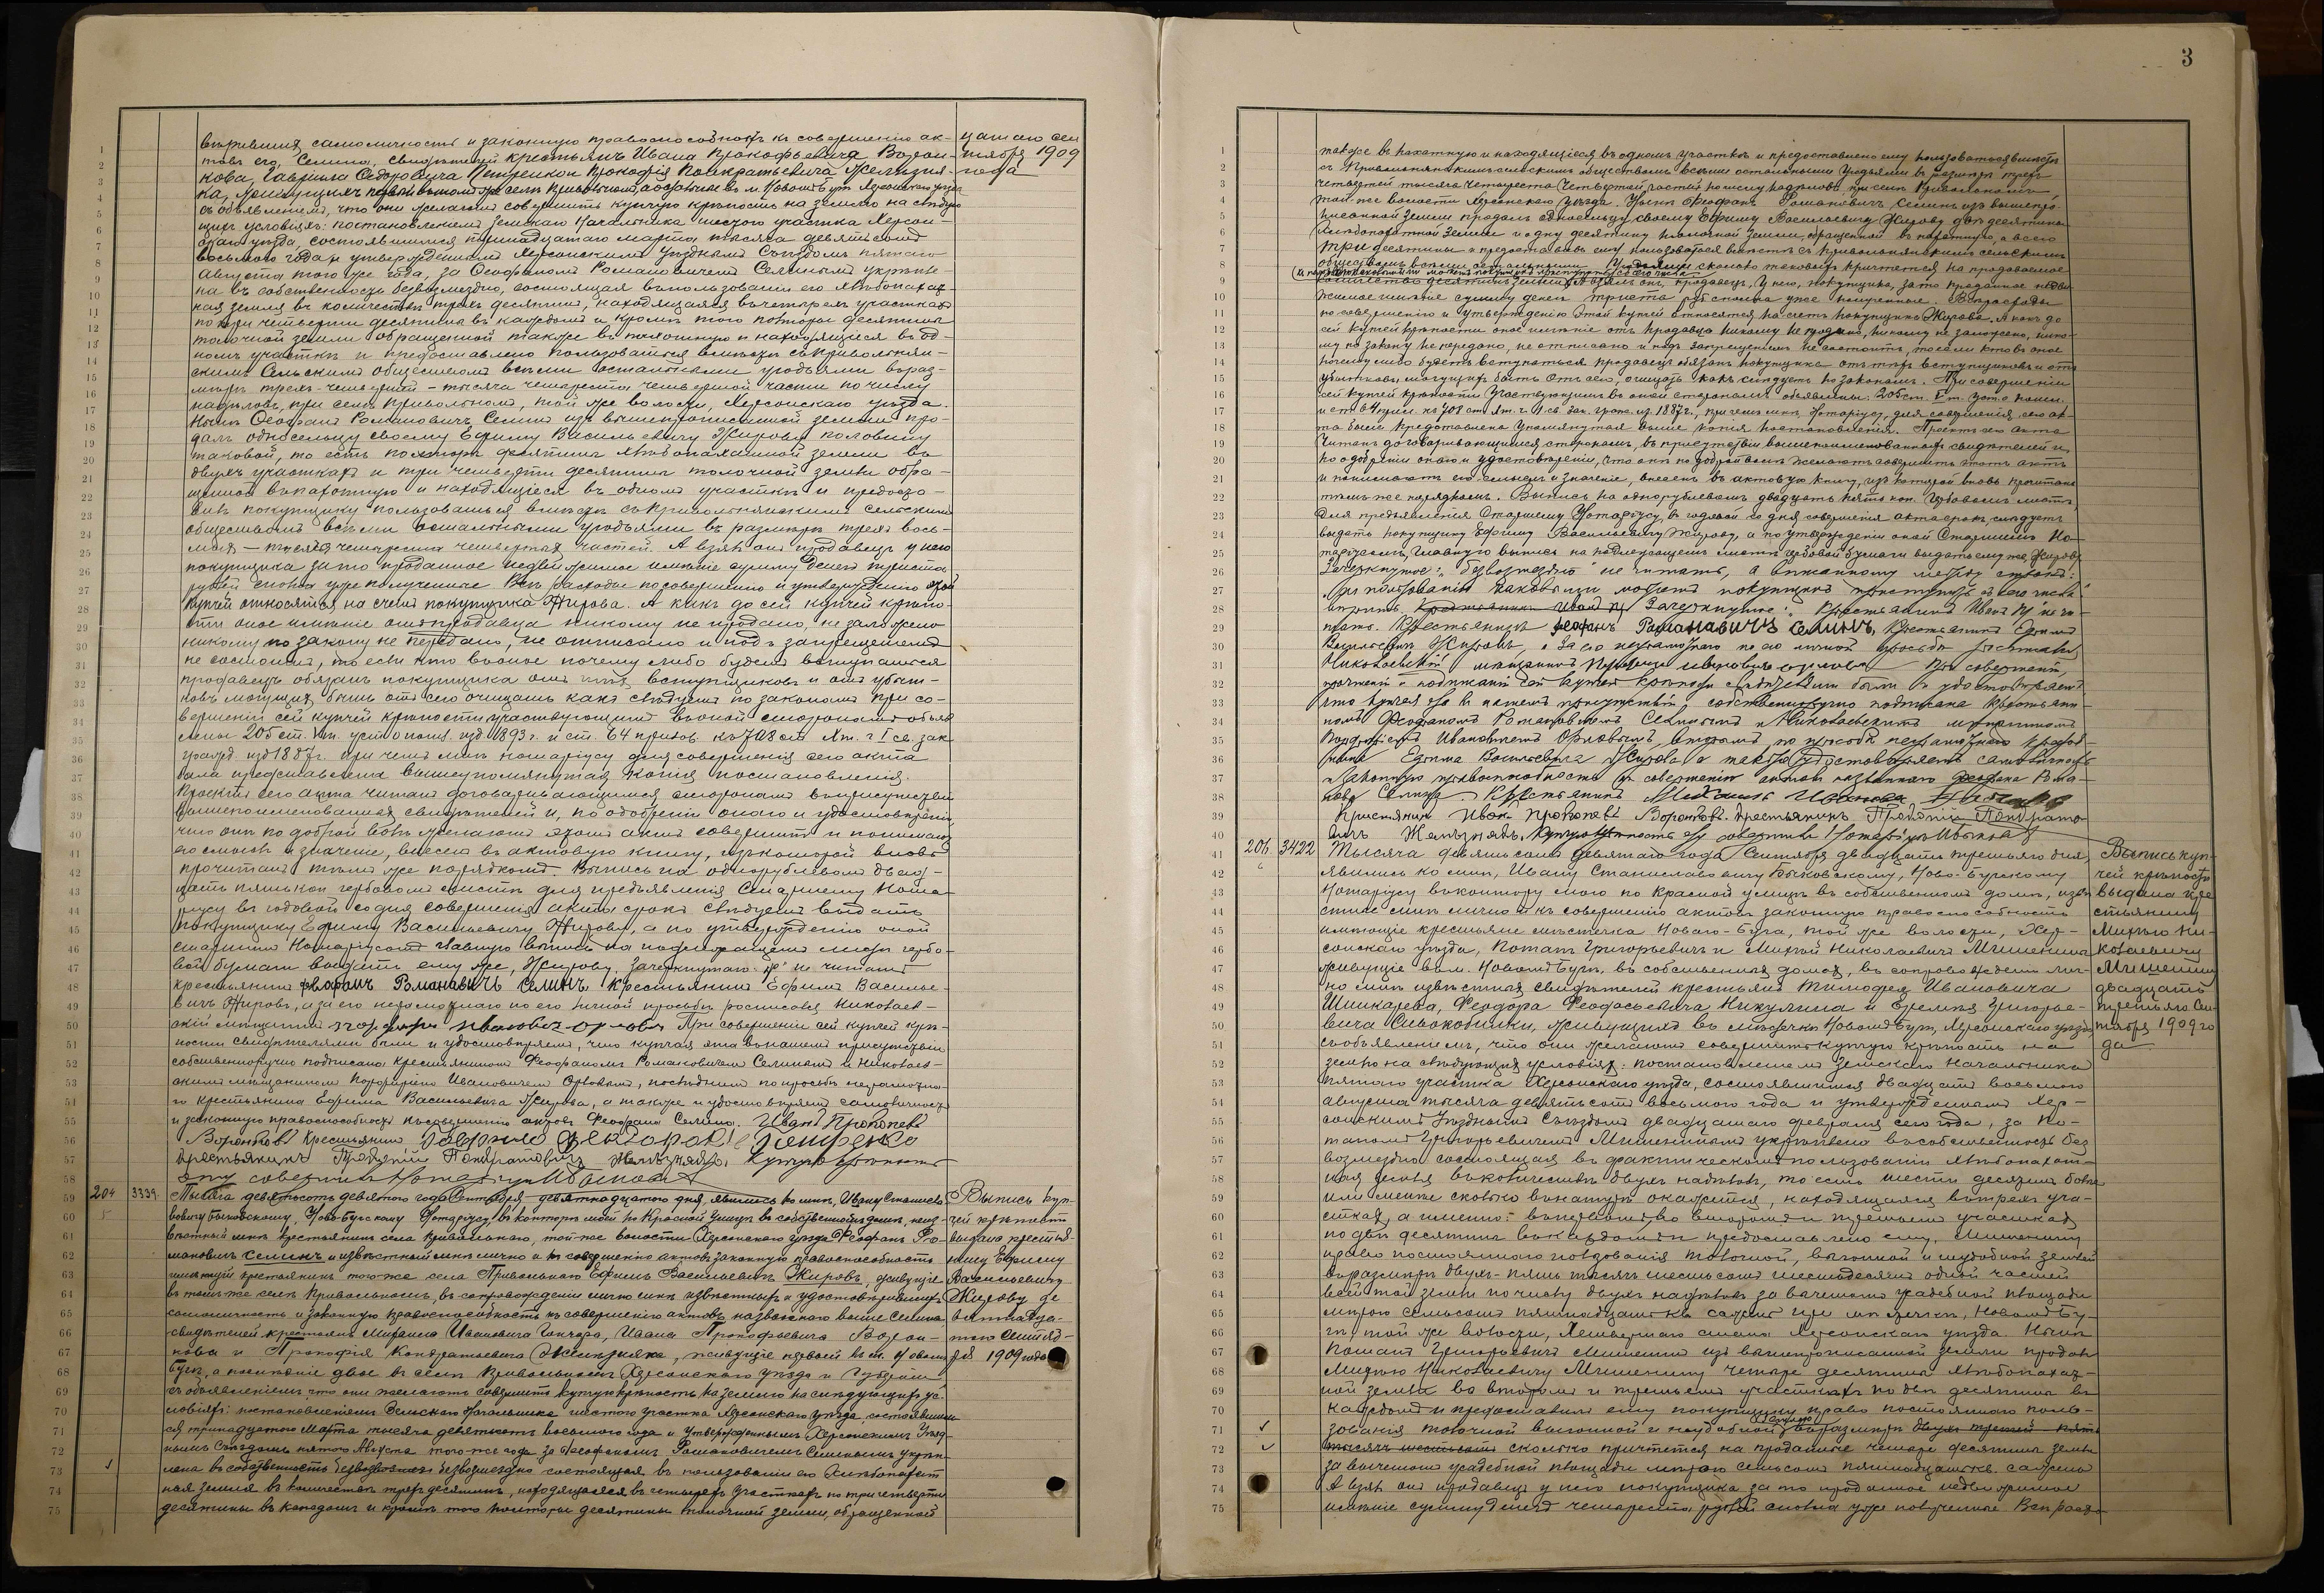 вѣрившихъ самоличность и законную правоспособность къ совершенію ак-
товъ его, Селина, свидѣтелей крестьянъ Ивана Прокофьевича Ворон-
кова, Гавріила Федоровича Петренко и Прокофія Панкратьевича Желѣзня-
ка, живущихъ въ м. Новомъ-Бугѣ Херсонскаго уѣзда
съ объявленіемъ, что они желаютъ совершить купчую крѣпость на землю на слѣдую-
щихъ условіяхъ: постановленіемъ Земскаго Начальника шестого участка Херсон-
скаго уѣзда, состоявшимся тринадцатаго марта тысяча девятьсотъ
восьмого года и утвержденнымъ Херсонскимъ Уѣзднымъ Съѣздомъ пятаго
Августа того же года, за Феофаномъ Романовичемъ Селинымъ укрѣпле-
на въ собственность безвозмездно, состоящая въ пользованіи его хлѣбопахат-
ная земля въ количествѣ трехъ десятинъ, находящаяся въ четырехъ участкахъ
по три четверти десятины въ каждомъ и кромѣ того полторы десятины
толочной земли обращенной также въ пахатную и находящіеся въ од-
номъ участкѣ и предоставлено пользоваться вмѣстѣ съ Привольнян-
скимъ Сельскимъ обществомъ всѣми остальными угодьями въ раз-
мѣрѣ трехъ-четвертей - тысяча четыреста четвертой части по числу
надѣловъ, при селѣ Привольномъ, той же волости, Херсонскаго уѣзда.
Нынѣ Феофанъ Романовичъ Селинъ изъ вышеписанной земли про-
далъ односельцу своему Ефиму Васильевичу Жирову половину
таковой, то есть полторы десятины хлѣбопахатной земли въ
двухъ участкахъ и три четверти десятины толочной земли обра-
щенной въ пахатную и находящіеся въ одномъ участкѣ и предоста-
вилъ покупщику пользоваться вмѣстѣ съ Привольнянскимъ сельскимъ
обществомъ всѣми остальными угодьями въ размѣрѣ трехъ вось-
мыхъ - тысяча четыреста четвертыхъ частей. А взялъ онъ продавецъ у него
покупщика за то проданное недвижимое имѣніе сумму денегъ триста
рублей сполна уже полученные. Всѣ расходы по совершенію и утвержденію этой
купчей относятся на счетъ покупщика Жирова. А какъ до сей купчей крѣпо-
сти оное имѣніе отъ продавца никому не продано, не заложено
никому по закону не передано, не отписано и подъ запрещеніемъ
не состоитъ, то если кто въ оное почему либо будетъ вступаться
продавецъ обязанъ покупщика отъ тѣхъ вступщиковъ и отъ убыт-
ковъ могущихъ быть отъ сего очищать какъ слѣдуетъ по законамъ. При со-
вершеніи сей купчей крѣпости участвующимъ въ оной сторонамъ объяв-
лены 205 ст. V т. уст. о пошл. изд. 1893 г. и ст. 64 прилож. къ 708 ст. X т. ч. I св. зак.
гражд. изд. 1887 г. При чемъ мнѣ нотаріусу для совершенія сего акта
была представлена вышеупомянутая копія постановленія.
Проектъ сего акта читанъ договаривающимся сторонамъ въ присутствіи
вышепоименованныхъ свидѣтелей и, по одобреніи онаго и удостовѣреніи,
что они по доброй волѣ желаютъ этотъ актъ совершить и понимаютъ
его смыслъ и значеніе, внесенъ въ актовую книгу, изъ которой вновь
прочитанъ тѣмъ же порядкомъ. Выпись на однорублевомъ двад-
цать пять коп. гербовомъ листѣ для предъявленія Старшему Нота-
ріусу въ годовой со дня совершенія акта срокъ слѣдуетъ выдать
покупщику Ефиму Васильевичу Жирову, а по утвержденіи оной
старшимъ Нотаріусомъ главную выпись на подлежащемъ листѣ гербо-
вой бумаги выдать ему же, Жирову. Зачеркнутаго не читать
Крестьянинъ Феофанъ Романавичъ Селинъ. Крестьянинъ Ефимъ Василье-
вичъ Жировъ, а за его неграмотнаго по его личной просьбѣ росписался Николаев-
скій мѣщанинъ Порфирій Ивановичъ Орловъ. При совершеніи сей купчей крѣ-
пости свидѣтелями были и удостовѣряемъ, что купчая эта въ нашемъ присутствіи
собственноручно подписана крестьяниномъ Феофаномъ Романовичемъ Селинымъ и Николаев-
скимъ мѣщаниномъ Порфиріемъ Ивановичемъ Орловымъ, послѣднимъ по просьбѣ неграмотна-
го крестьянина Ефима Васильевича Жирова, а также и удостовѣряемъ самоличность
и законную правоспособность къ совершенію актовъ Феофана Селина. Иванъ Прокопевъ
Воронковъ Крестьянинъ Гаврило Федоровъ Петренко
Крестьянинъ Прокофій Панкратовичъ Желѣзнякъ. Купчую крѣпость
эту совершилъ Нотаріусъ И. Быковскій
204 3339. Тысяча девятьсотъ девятого года Сентября девятнадцатого дня, явились ко мнѣ, Ивану Станисла-
вовичу Быковскому, Ново-Бугскому Нотаріусу, въ контору мою по Красной улицѣ въ собственномъ домѣ, неиз-
вѣстный мнѣ крестьянинъ села Привольнаго, той же волости Херсонскаго уѣзда Феофанъ Ро-
мановичъ Селинъ и извѣстный мнѣ лично и къ совершенію актовъ законную правоспособность
имѣющій крестьянинъ того-же села Привольнаго Ефимъ Васильевичъ Жировъ, живущіе
въ томъ-же селѣ Привольномъ, въ сопровожденіи лично мнѣ извѣстныхъ и удостовѣрившихъ
самоличность и законную правоспособность къ совершенію актовъ названнаго выше Селина,
свидѣтелей крестьянъ Михаила Ивановича Гончара, Ивана Прокофьевича Ворон-
кова и Прокофія Кондратьевича Желѣзняка, живущіе первый въ м. Новомъ
Бугѣ, а послѣдніе двое въ селѣ Привольномъ Херсонскаго уѣзда и Губерніи
съ объявленіемъ, что они желаютъ совершить купчую крѣпость на землю на слѣдующихъ ус-
ловіяхъ: постановленіемъ Земскаго Начальника шестого участка Херсонскаго уѣзда, состоявшим-
ся тринадцатаго Марта тысяча девятьсотъ восьмого года и утвержденнымъ Херсонскимъ Уѣзд-
нымъ Съѣздомъ пятого Августа того-же года за Феофаномъ Романовичемъ Селинымъ укрѣп-
лена въ собственность безвозмездно состоящая въ пользованіи его хлѣбопахат-
ная земля въ количествѣ трехъ десятинъ, находящаяся въ четырехъ участкахъ по три четверти
десятины въ каждомъ и кромѣ того полторы десятины толочной земли, обращенной
цатаго Сен
тября 1909
года
Выпись куп-
чей крѣпости
выдана крестья-
нину Ефиму
Васильевичу
Жирову де
вятнадца-
таго Сентяб-
ря 1909 года
3
также въ пахатную и находящіеся въ одномъ участкѣ и предоставлено ему пользоваться вмѣстѣ
съ Привольнянскимъ сельскимъ обществомъ всѣми остальными угодьями въ размѣрѣ трехъ
четвертей тысяча четыреста четвертой части по числу надѣловъ при селѣ Привольномъ
той-же волости Херсонскаго уѣзда. Нынѣ Феофанъ Романовичъ Селинъ изъ вышепро-
писанной земли продалъ односельцу своему Ефиму Васильевичу Жирову двѣ десятины
хлѣбопахатной земли и одну десятину толочной земли, обращенной въ пахатную, а всего
три десятины и предоставилъ ему пользоваться вмѣстѣ съ Привольнянскимъ сельскимъ
обществомъ всѣми остальными угодьями сколько таковыхъ причтется на проданное
количество десятинъ земли. А взялъ онъ, продавецъ, у него, покупщика, за то проданное недви-
жимое имѣніе сумму денегъ триста руб. сполна уже полученные. Всѣ расходы
по совершенію и утвержденію этой купчей относятся на счетъ покупщика Жирова. А какъ до
сей купчей крѣпости оное имѣніе отъ продавца никому не продано, никому не заложено, нико-
му по закону не передано, не отписано и подъ запрещеніемъ не состоитъ, то если кто въ оное
почему либо будетъ вступаться продавецъ обязанъ покупщика отъ тѣхъ вступщиковъ и отъ
убытковъ, могущихъ быть отъ сего, очищать какъ слѣдуетъ по законамъ. При совершеніи
сей купчей крѣпости участвующимъ въ оной сторонамъ объявлены: 205 ст. V т. уст. о пошл.
и ст. 64 прил. къ 708 ст. X т. ч. I св. зак. гражд. изд. 1887 г., при чемъ мнѣ, Нотаріусу, для совершенія сего ак-
та была представлена упомянутая выше копія постановленія. Проектъ сего акта
читанъ договаривающимся сторонамъ, въ присутствіи вышепоименованныхъ свидѣтелей и,
по одобреніи онаго и удостовѣреніи, что они по доброй волѣ желаютъ совершить этотъ актъ
и понимаютъ его смыслъ и значеніе, внесенъ въ актовую книгу, изъ которой вновь прочитанъ
тѣмъ же порядкомъ. Выпись на однорублевомъ двадцать пять коп. гербовомъ листѣ,
для предъявленія Старшему Нотаріусу, въ годовой со дня совершенія акта срокъ слѣдуетъ
выдать покупщику Ефиму Васильевичу Жирову, а по утвержденіи оной Старшимъ Но-
таріусомъ, главную выпись на подлежащемъ листѣ гербовой бумаги выдать ему же, Жирову
Зачеркнутое: "безвозмездно" не читать, а писанному между строкъ:
вѣрить. Зачеркнутое: "Крестьянинъ Иванъ Пр" не чи-
тать. Крестьянинъ Феофанъ Романавичъ Селинъ. Крестьянинъ Ефимъ
Васильевичъ Жировъ, а за его неграмотнаго по его личной просьбѣ росписался
Николаевскій мѣщанинъ Порфирій Ивановичъ Орловъ. При совершеніи,
прочтеніи и подписаніи сей купчей крѣпости свидѣтелями были и удостовѣряемъ
что купчая эта въ нашемъ присутствіи собственноручно подписана крестьяни-
номъ Феофаномъ Романовичемъ Селинымъ и Николаевскимъ мѣщаниномъ
Порфиріемъ Ивановичемъ Орловымъ, вторымъ по просьбѣ неграмотнаго крестья-
нина Ефима Васильевича Жирова а также удостовѣряемъ самоличность
и законную правоспособность къ совершенію актовъ названнаго Феофана Рома-
нова Селина. Крестьянинъ Михаилъ Ивановъ Гончаръ
Крестьянинъ Иванъ Прокопевъ Воронковъ. Крестьянинъ Прокофій Панкрато-
вичъ Желѣзнякъ. Купчую крѣпость эту совершилъ Нотаріусъ И. Быковскій
206 3422 Тысяча девятьсотъ девятаго года Сентября двадцать третьяго дня,
явились ко мнѣ, Ивану Станиславовичу Быковскому, Ново-Бугскому
Нотаріусу въ контору мою по Красной улицѣ въ собственномъ домѣ, извѣ-
стные мнѣ лично и къ совершенію актовъ законную правоспособность
имѣющіе крестьяне мѣстечка Новаго-Буга, той же волости, Хер-
сонскаго уѣзда, Потапъ Григорьевичъ и Михей Николаевичъ Мишенины
живущіе въ м. Новомъ Бугѣ, въ собственныхъ домахъ, въ сопровожденіи лич-
но мнѣ извѣстныхъ свидѣтелей крестьянъ Тимофея Ивановича
Шинкарева, Федора Феодосьевича Никулина и Еремея Григорье-
вича Сивокобылки, живущихъ въ мѣстечкѣ Новомъ Бугѣ, Херсонскаго уѣзда
съ объявленіемъ, что они желаютъ совершить купчую крѣпость на
землю на слѣдующихъ условіяхъ: постановленіемъ Земскаго Начальника
пятого участка Херсонскаго уѣзда, состоявшимся двадцать восьмого
августа тысяча девятьсотъ восьмого года и утвержденнымъ Хер-
сонскимъ Уѣзднымъ Съѣздомъ двадцатаго февраля сего года, за По-
тапомъ Григорьевичемъ Мишенинымъ укрѣплена въ собственность без
возмездно состоящая въ фактическомъ пользованіи хлѣбопахат-
ная земля въ количествѣ двухъ надѣловъ, то есть шести десятинъ болѣе
или менѣе сколько въ натурѣ окажется, находящаяся въ трехъ уча-
сткахъ, а именно: въ первомъ, во второмъ и третьемъ участкахъ
по двѣ десятины въ каждомъ и предоставлено ему, Мишенину
право постояннаго пользованія толочной, выгонной и неудобной землей
въ размѣрѣ двухъ-пять тысячъ шестьсотъ шестьдесятъ одной частей
всей той земли по числу двухъ надѣловъ за вычетомъ усадебной площади
мѣрою семьсотъ пятнадцать кв. сажень при мѣстечкѣ, Новомъ Бу-
гѣ, той же волости, Четвертаго стана Херсонскаго уѣзда. Нынѣ
Потапъ Григорьевичъ Мишенинъ изъ вышепрописанной земли продалъ
Михею Николаевичу Мишенину четыре десятины хлѣбопахат-
ной земли во второмъ и третьемъ участкахъ по двѣ десятины въ
каждомъ и предоставилъ ему покупщику право постояннаго поль-
зованія толочной выгонной и неудобной землею въ размѣрѣ двухъ третей пять
тысячъ шестьсотъ сколько причтется на проданные четыре десятины земли
за вычетомъ усадебной площади мѣрою семьсотъ пятнадцать кв. сажень
А взялъ онъ продавецъ у него покупщика за то проданное недвижимое
имѣніе сумму денегъ четыреста рублей сполна уже полученные. Всѣ расхо-
Выпись куп-
чей крѣпости
выдана кре
стьянину
Михею Ни-
колаевичу
Мишенину
двадцать
третьяго Сен-
тября 1909 го
да